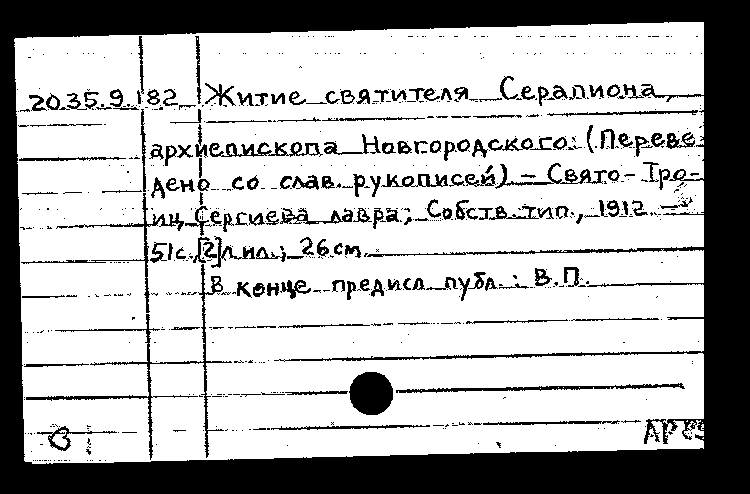 20.35.9.182 Житие святителя Серапиона,
архиепископа Новгородского: (Переве-
дено со слав. рукописей) – Свято-Тро-
иц. Сергиева лавра; Собств. тип., 1912 –
51с.,[2]л ил.; 26см.
В конце предисл публ.: В.П.
В
АР 89